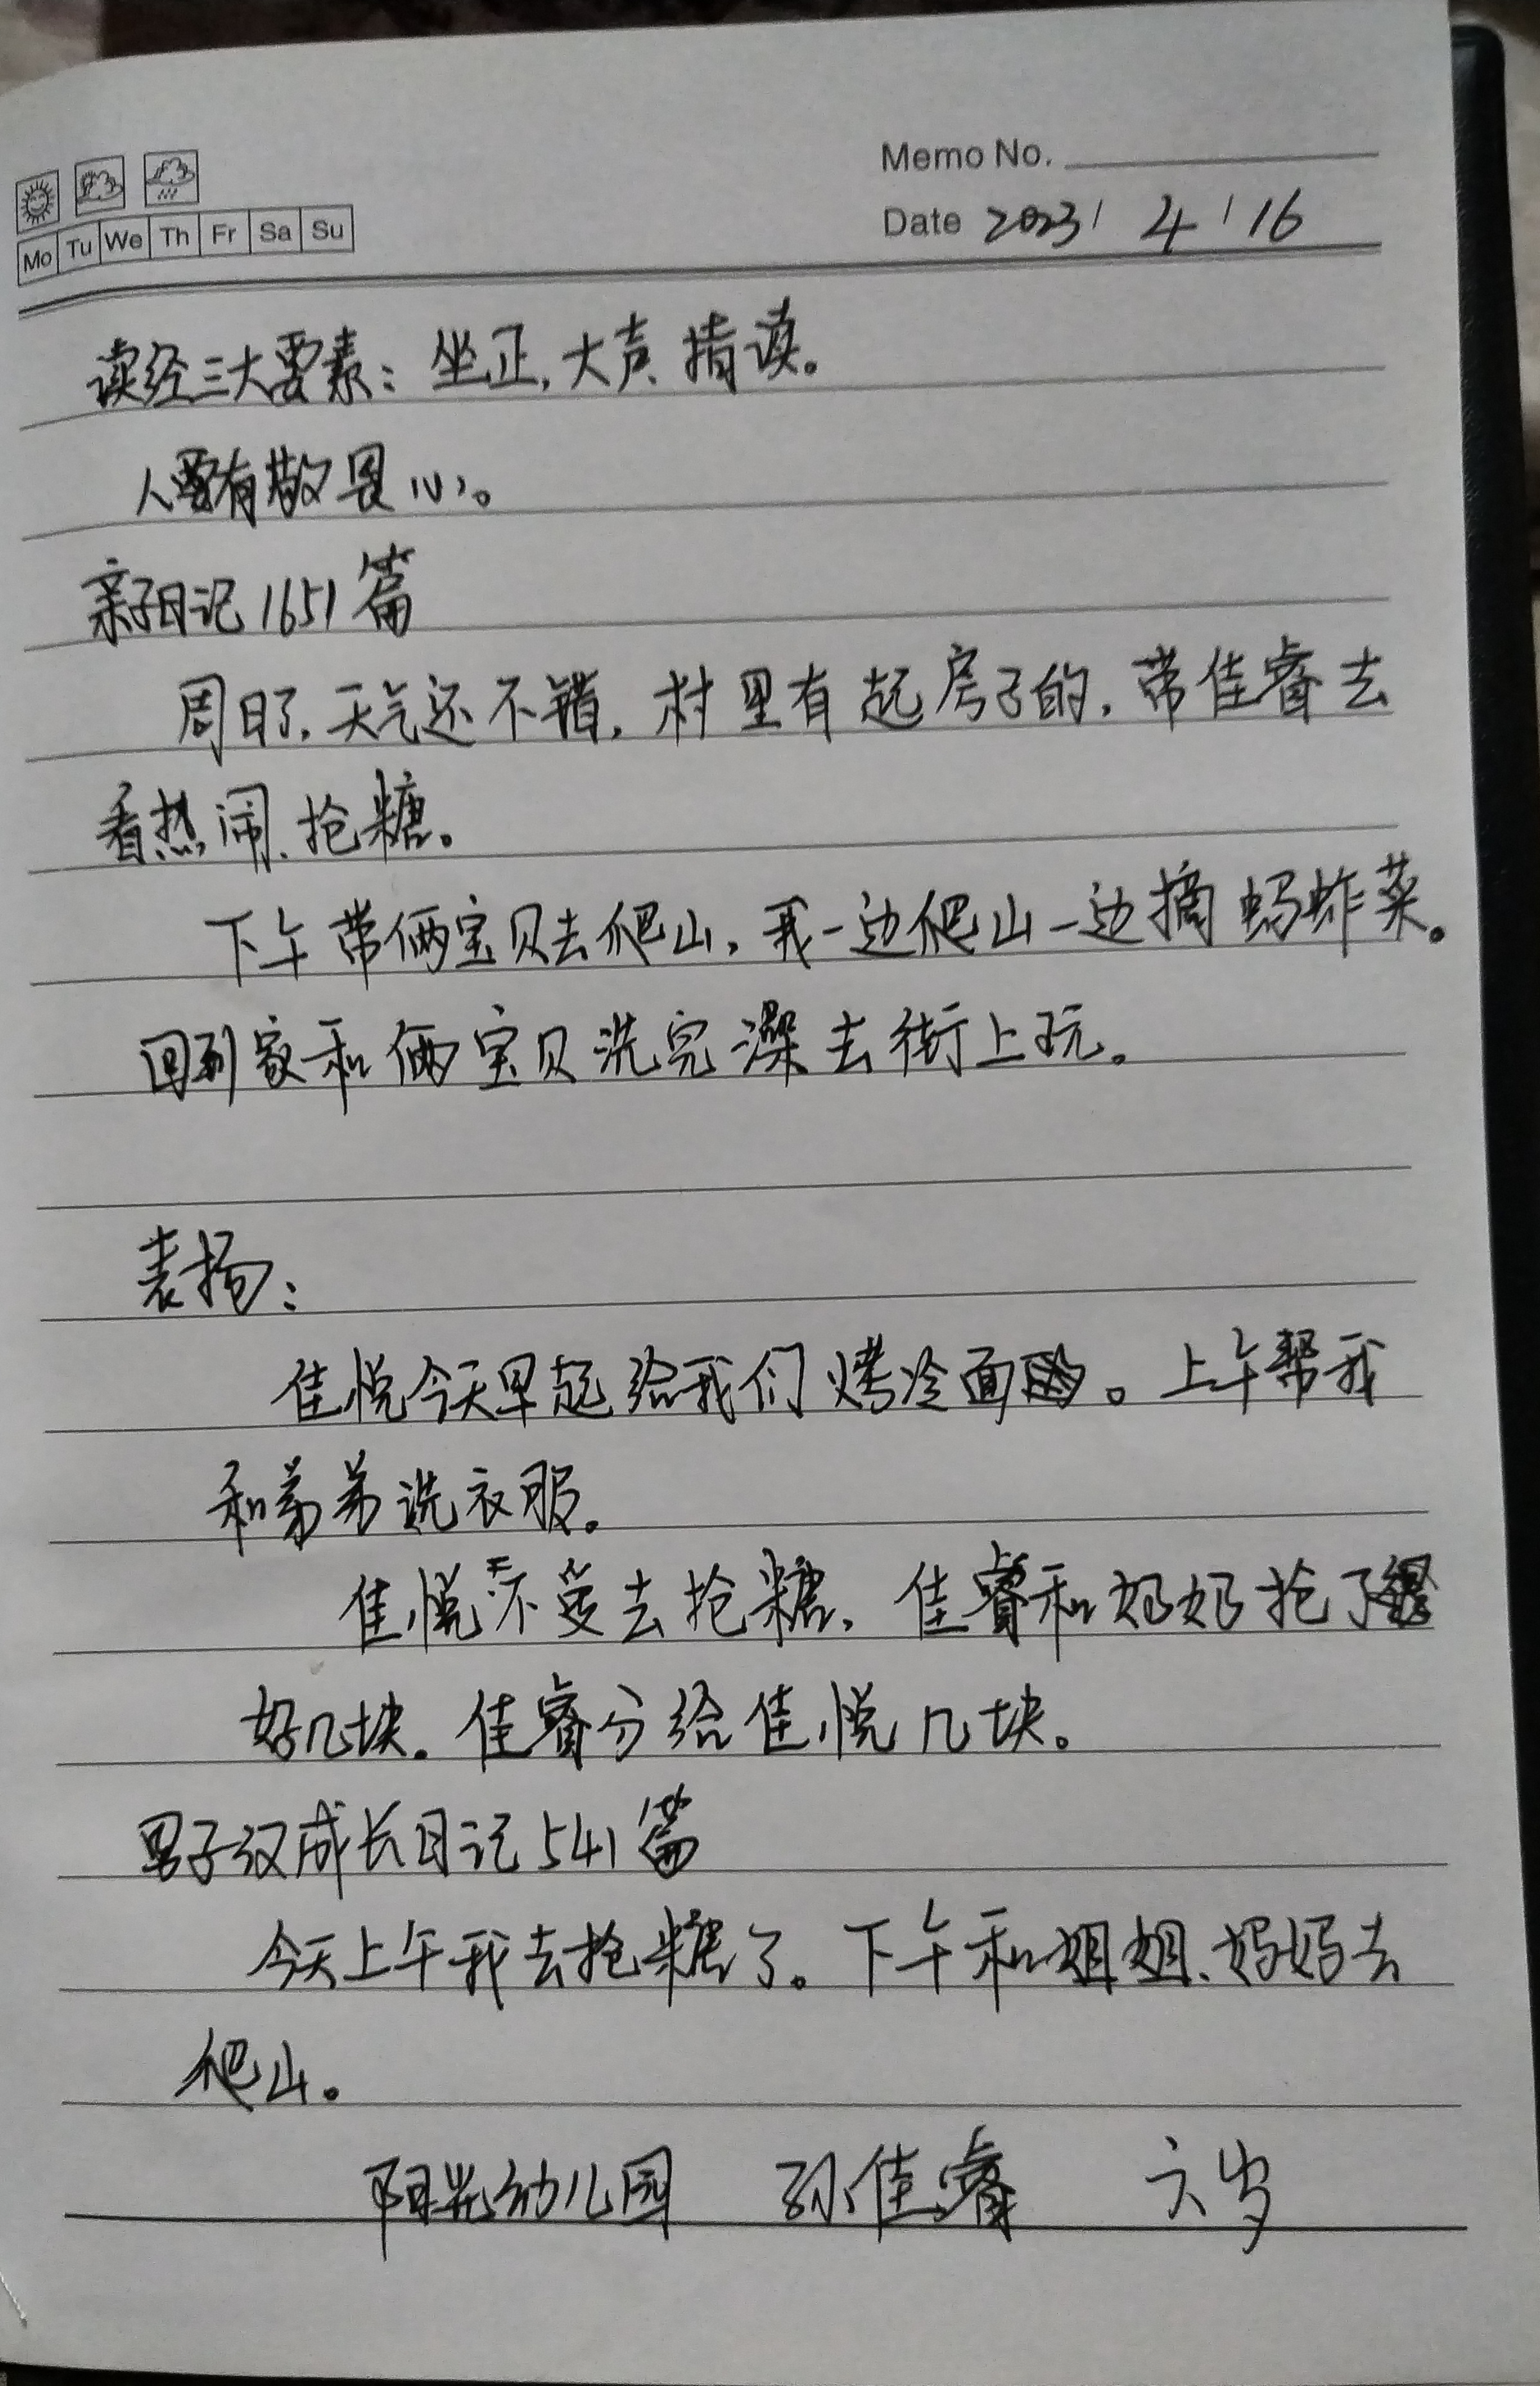 Memo No.
Mo Tu We Th Fr Sa Su
Date 2023 / 4 / 16
读经三大要素：坐正，大声、指读。
人要有敬畏心。
亲子日记1651篇
周日了，天气还不错，村里有起房子的，带佳睿去
看热闹、抢糖。
下午带俩宝贝去爬山，我一边爬山一边摘蚂蚱菜。
回到家和俩宝贝洗完澡去街上玩。
表扬：
佳悦今天早起给我们烤冷面。上午帮我
和弟弟洗衣服。
佳悦不爱去抢糖，佳睿和奶奶抢了
好几块。佳睿分给佳悦几块。
男子汉成长日记541篇
今天上午我去抢糖了。下午和姐姐、妈妈去
爬山。
阳光幼儿园 孙佳睿 六岁